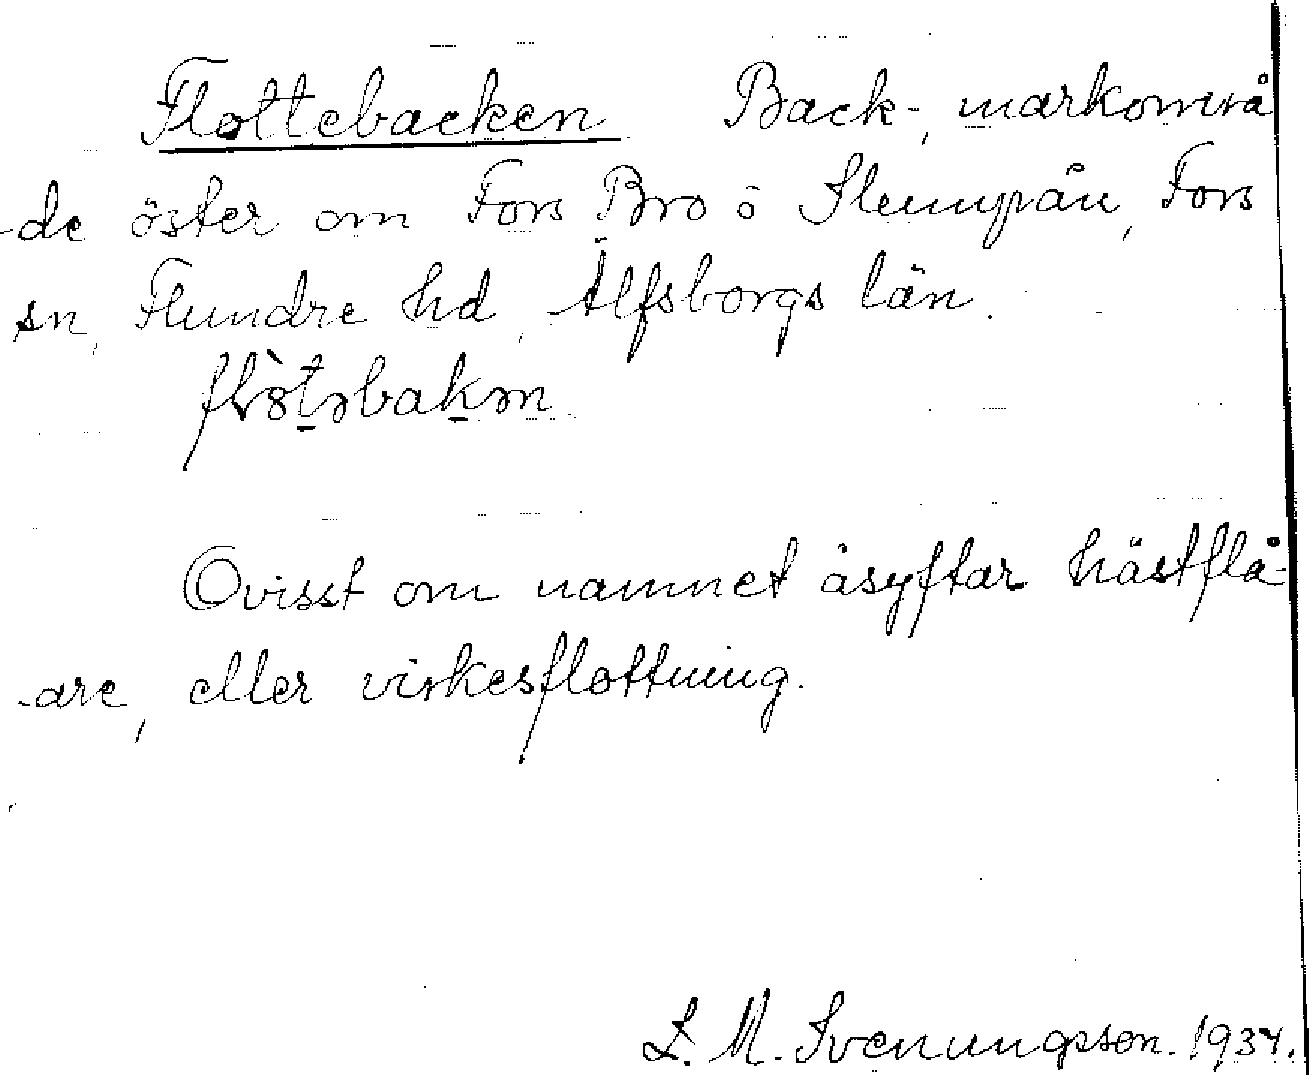 Flottebacken Back-, markområ
-de öster om Fors Bro ö Slumpån, Fors
sn, Flundre hd, Älfsborgs län.
Ovisst om namnet åsyftar hästflå-
-are, eller virkesflottning.
L. M. Svenungsson. 1934.